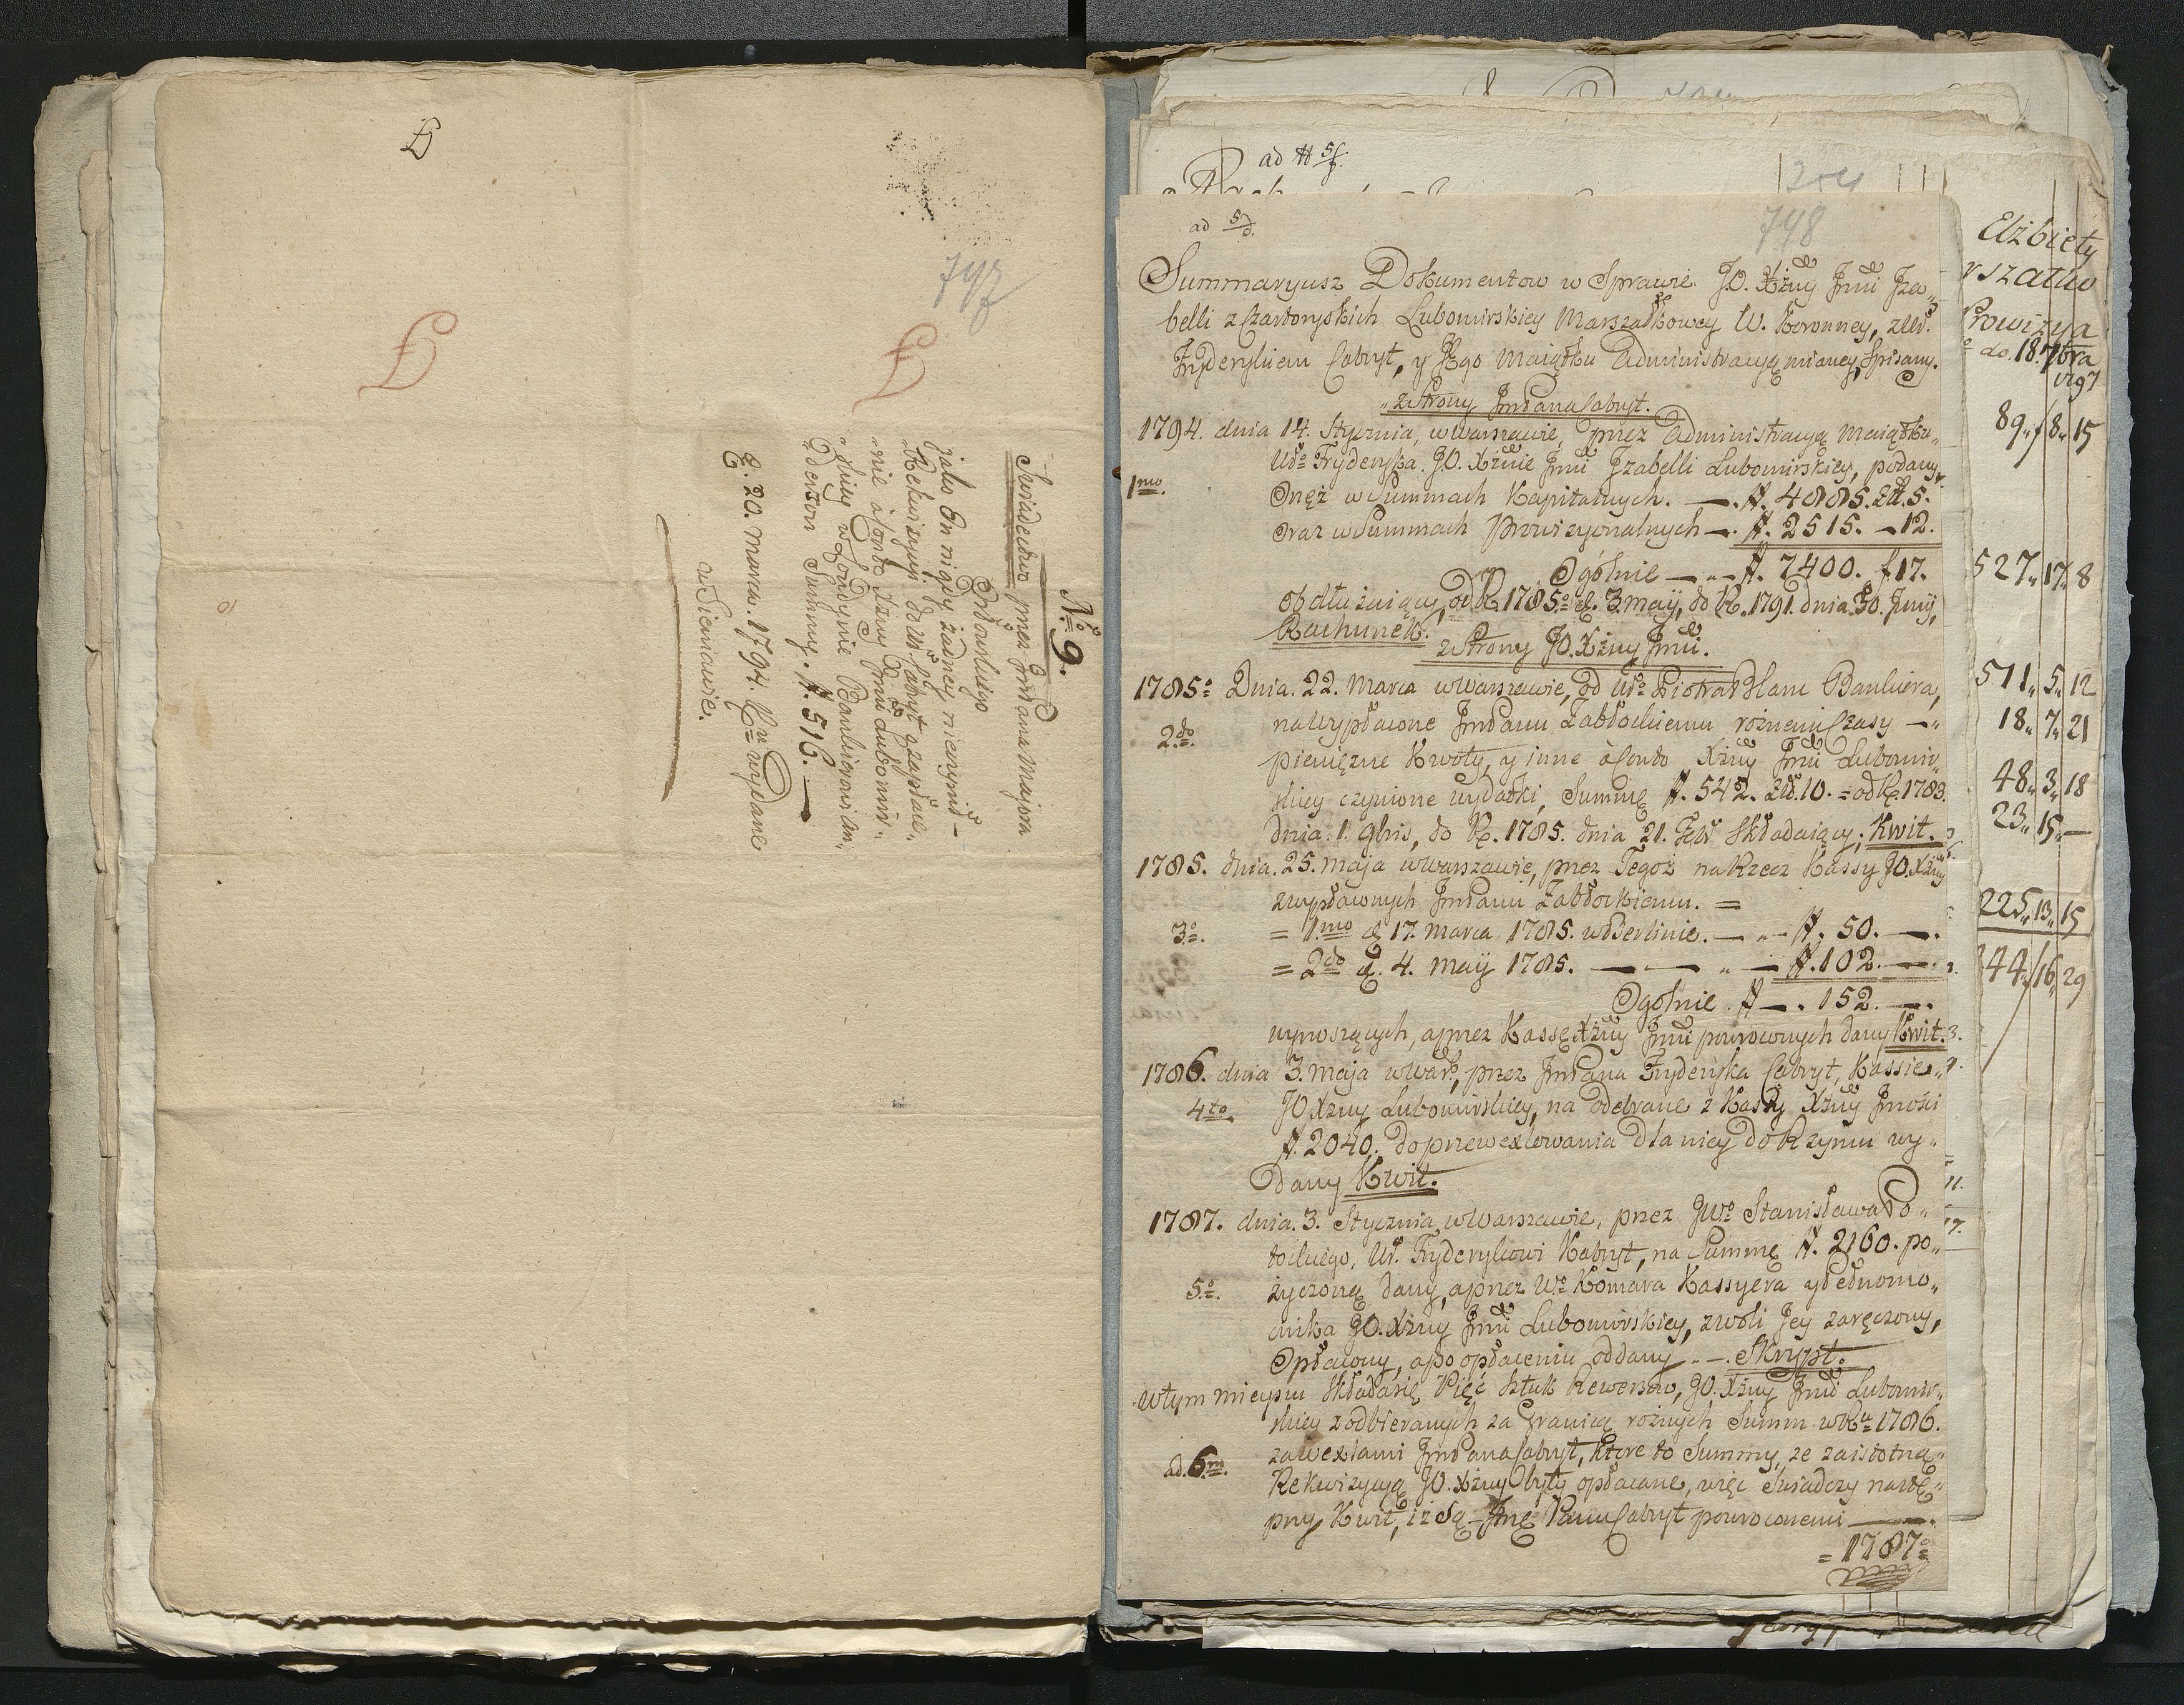 747
No 9.
Swiadectwo przez JmPana Majora
Orłowskiego
jako On nigdy żadney nieczynił
Rekwizycyi do Ur. Cabryt zapłace-
nie à Conto Xżny Jmci Lubomir-
skiey w Londynie Bankierowi An-
derson Summy # 516. —
D. 20. Marca. 1794. Ru wydane
w Sieniawie.
ad # 5/f.
254
ad 5/d.
748
Summaryusz Dokumentow w Sprawie J.O. Xżny Jmci Iza-
belli z Czartoryskich Lubomirskiey Marszałkowey W. Koronney, z Ur.
Fryderykiem Cabryt, y Jego Maiątku Administracyą mianey, Spisany.
z Strony JmPana Cabryt.
1794. dnia 14. Stycznia, w Warszawie, przez Administracyą Maiątku
Uro Fryderyka. J.O. Xżnie Jmci Izabelli Lubomirskiey, podany
1mo. Onęż w Summach Kapitalnych. — #. 4885. Zł. 5.
oraz w Summach Prowizyonalnych — #. 2515. — 12.
Ogólnie — #. 7400. f 17.
obdłużaiący, od R. 1785o d. 3. maij, do R. 1791. dnia 30. Junij,
Rachunek.
z Strony JO. Xżny Jmci.
1785o Dnia. 22. Marca w Warszawie, od Uro Piotra Blanc Bankiera,
2do. na wypłacone JmPanu Zabłockiemu rożnemi Czasy —
pieniężne Kwoty, y inne à Conto Xżny Jmci Lubomir-
skiey czynione wydatki, Summę #. 542. Zł. 10. = od R. 1783.
dnia. 1. 9bris, do R. 1785. dnia 21. Febr składaiący; Kwit.
1785. dnia. 25. maja w Warszawie, przez Tegoż na Rzecz Kassy JO. Xżny
z wypłaconych JmPanu Zabłockiemu. =
3o. = 1mo d 17. marca 1785. w Berlinie. — #. 50. —.
= 2do d. 4. maij 1785. — — #. 102. —
Ogólnie # — . 152. —.
wynoszących, a przez Kassę Xżny Jmci powroconych dany Kwit.
1786. dnia 3. Maja w Warsz., przez JmPana Fryderyka Cabryt, Kassie
4to. JO Xżny Lubomirskiey, na odebrane z Kassy Xżny Jmości
#. 2040. do przewexlowania dla niey do Rzymu wy-
dany Kwit.
1787. dnia. 3. Stycznia w Warszawie, przez JWo Stanisława Po-
tockiego, Ur. Fryderykowi Kabryt, na Summę #. 2160. po-
5o. życzoną dany, a przez Wo Komara Kassyera y Pełnomo-
cnika JO. Xżny Jmci Lubomirskiey, z woli Jey zaręczony,
Opłacony, a po opłaceniu oddany — Skrypt.
W tym mieyscu składa się Pięć Sztuk Rewersow, JO. Xżny Jmci Lubomir-
skiey z odbieranych za Granicą rożnych Summ w Ru 1786.
ad. 6m. za wexlami JmPana Cabryt, ktore to Summy, ze za istotną
Rekwizycyą JO. Xżny były opłacane, więc Swiadczy nastę-
pny Kwit, iż Są Jmę Panu Cabryt powroconemi —
= 1787o
Elżbiety
Prowizya
do 18. 7bra
1797
89. 8. 15
527. 17. 8
511. 5. 12
18. 7. 21
48. 3. 18
23. 15. —
225. 13. 15
344. 16. 29